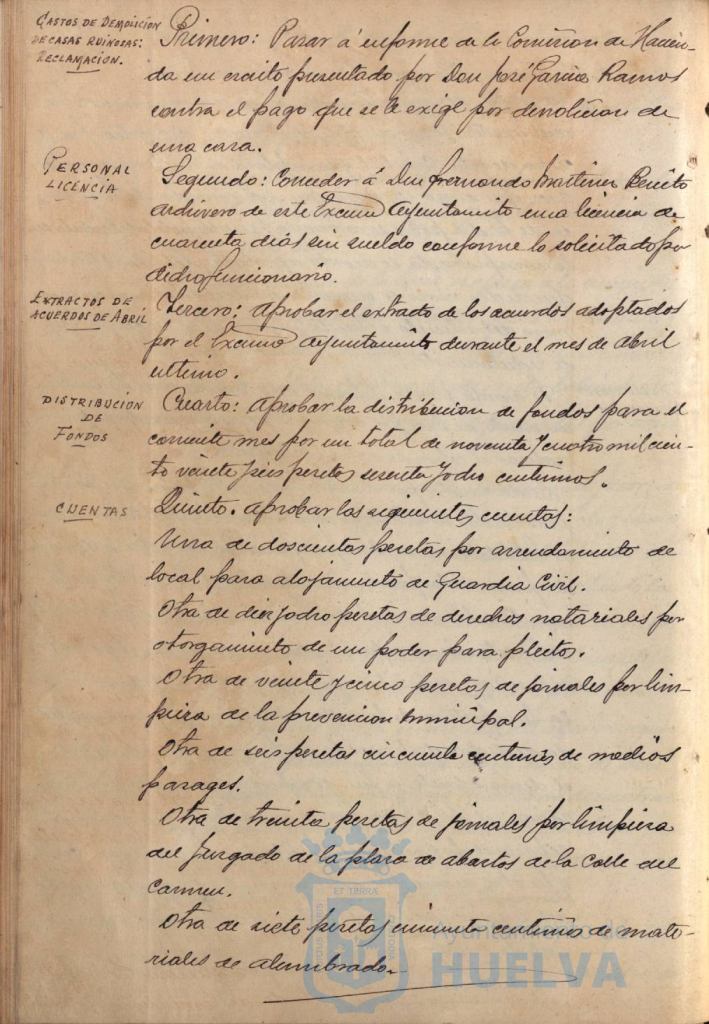 GASTOS DE DEMOLICION
DE CASAS RUINOSAS:
RECLAMACION.
Primero: Pasar á informe de la Comision de Hacien-
da un escrito presentado por Don José Garcia Ramos
contra el pago que se le exige por demolicion de
una casa.
PERSONAL
LICENCIA
Segundo: Conceder á Don Fernando Martinez Benito
archivero de este Excmo Ayuntamiento una licencia de
cuarenta dias sin sueldo conforme lo solicitado por
dicho funcionario.
EXTRACTOS DE
ACUERDOS DE ABRIL
Tercero: Aprobar el extracto de los acuerdos adoptados
por el Excmo Ayuntamiento durante el mes de Abril
ultimo.
DISTRIBUCION
DE
FONDOS
Cuarto: Aprobar la distribucion de fondos para el
corriente mes por un total de noventa y cuatro mil cien-
to veinte y seis pesetas sesenta y ocho centimos.
CUENTAS
Quinto. Aprobar las siguientes cuentas:
Una de doscientas pesetas por arrendamiento de
local para alojamiento de Guardia Civil.
Otra de diez y ocho pesetas de derechos notariales por
otorgamiento de un poder para pleitos.
Otra de veinte y cinco pesetas de jornales por lim-
pieza de la prevencion municipal.
Otra de seis pesetas cincuenta centimos de medios
parages.
Otra de treinta pesetas de jornales por limpieza
del Juzgado de la plaza de abastos de la Calle del
Carmen.
Otra de siete pesetas cincuenta centimos de mate-
riales de alumbrado.
ET TERRÆ
Ayuntamiento de
HUELVA